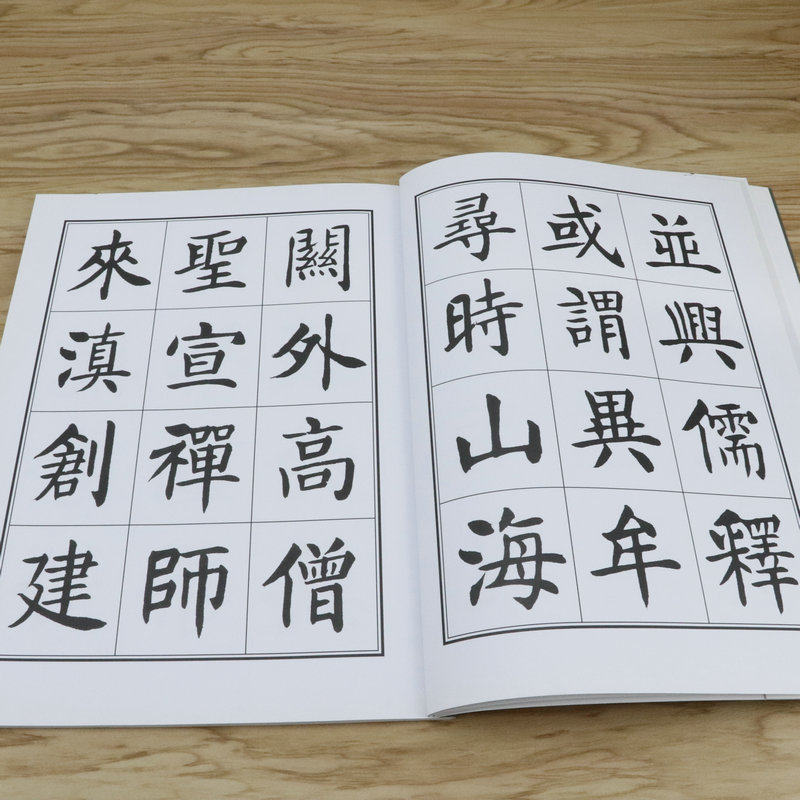 並興儒釋
或謂異牟
尋時山海
關外高僧
聖宣禪師
來滇創建